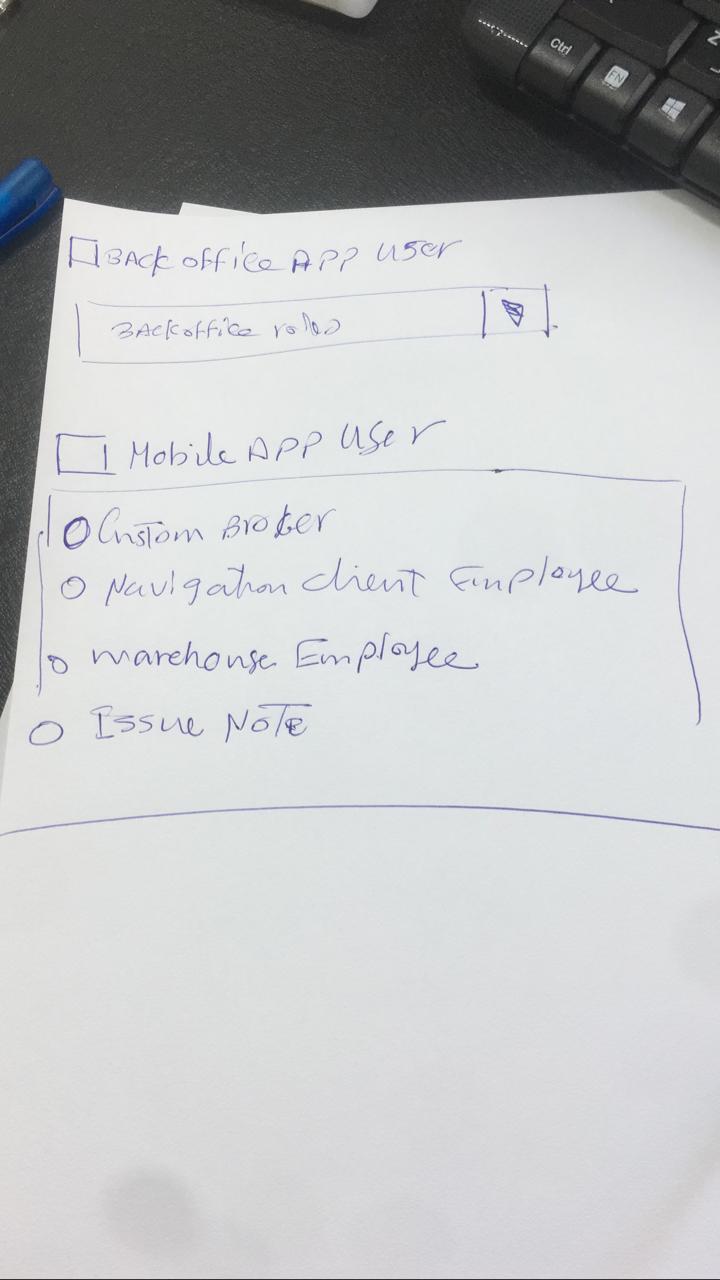 Ctrl
FN
Z
BACK office APP User
BACKoffice roles
Mobile APP User
Custom Broker
Navigation client Employee
warehouse Employee
Issue Note